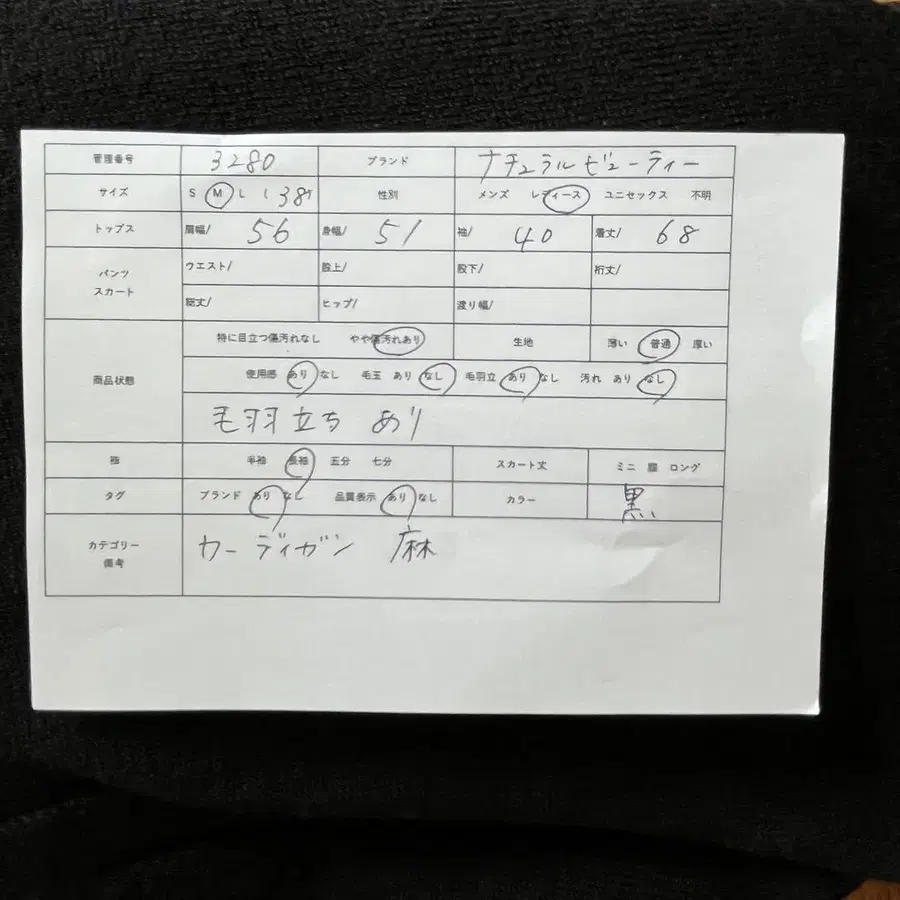 管理番号 3280 ブランド ナチュラルビューティー
サイズ S M L ( 38 性別 メンズ レディース ユニセックス 不明
トップス 肩幅/ 56 身幅/ 51 袖/ 40 着丈/ 68
パンツ スカート ウエスト/ 股上/ 股下/ 裄丈/
総丈/ ヒップ/ 渡り幅/
商品状態 特に目立つ傷汚れなし やや傷汚れあり 生地 薄い 普通 厚い
使用感 あり なし 毛玉 あり なし 毛羽立 あり なし 汚れ あり なし
毛羽立ち あり
袖 半袖 長袖 五分 七分 スカート丈 ミニ 膝 ロング
タグ ブランド あり なし 品質表示 あり なし カラー 黒
カテゴリー 備考 カーディガン 麻